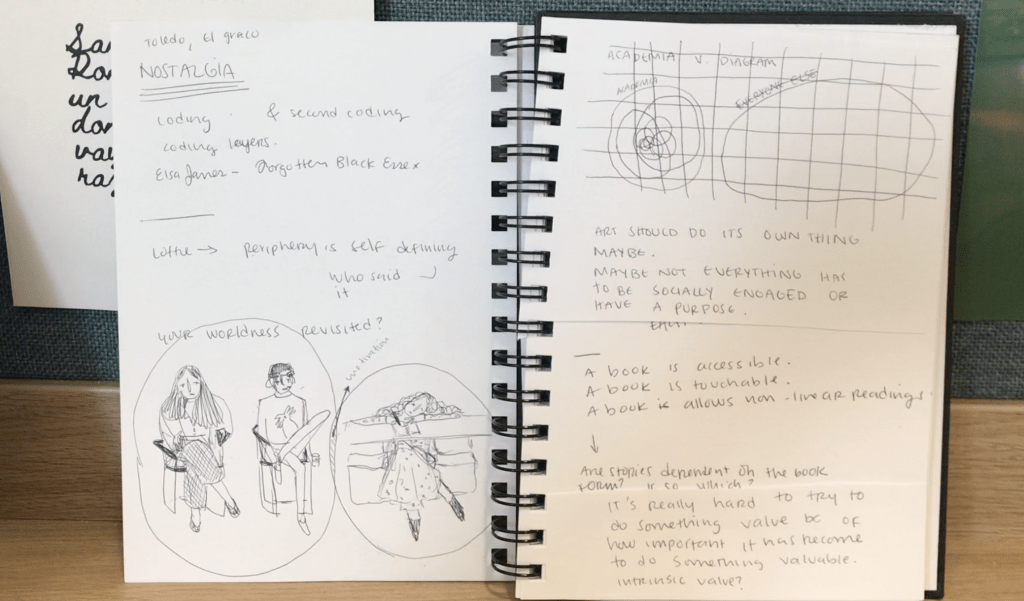 Sa
Ro
un
don
vay
ra
Toledo, El greco
NOSTALGIA
coding & second coding
coding layers.
Elsa James - Forgotten Black Essex
Lottie → periphery is self defining
who said
it
your worldness revisited?
motivation
ACADEMIA V. DIAGRAM
ACADEMIA
EVERYONE ELSE
ART SHOULD DO ITS OWN THING
MAYBE.
MAYBE NOT EVERYTHING HAS
TO BE SOCIALLY ENGAGED OR
HAVE A PURPOSE.
A book is accessible.
A book is touchable.
A book is allows non-linear readings.
↓
Are stories dependent on the book
form? If so which?
It's really hard to try to
do something value bc of
how important it has become
to do something valuable.
intrinsic value?